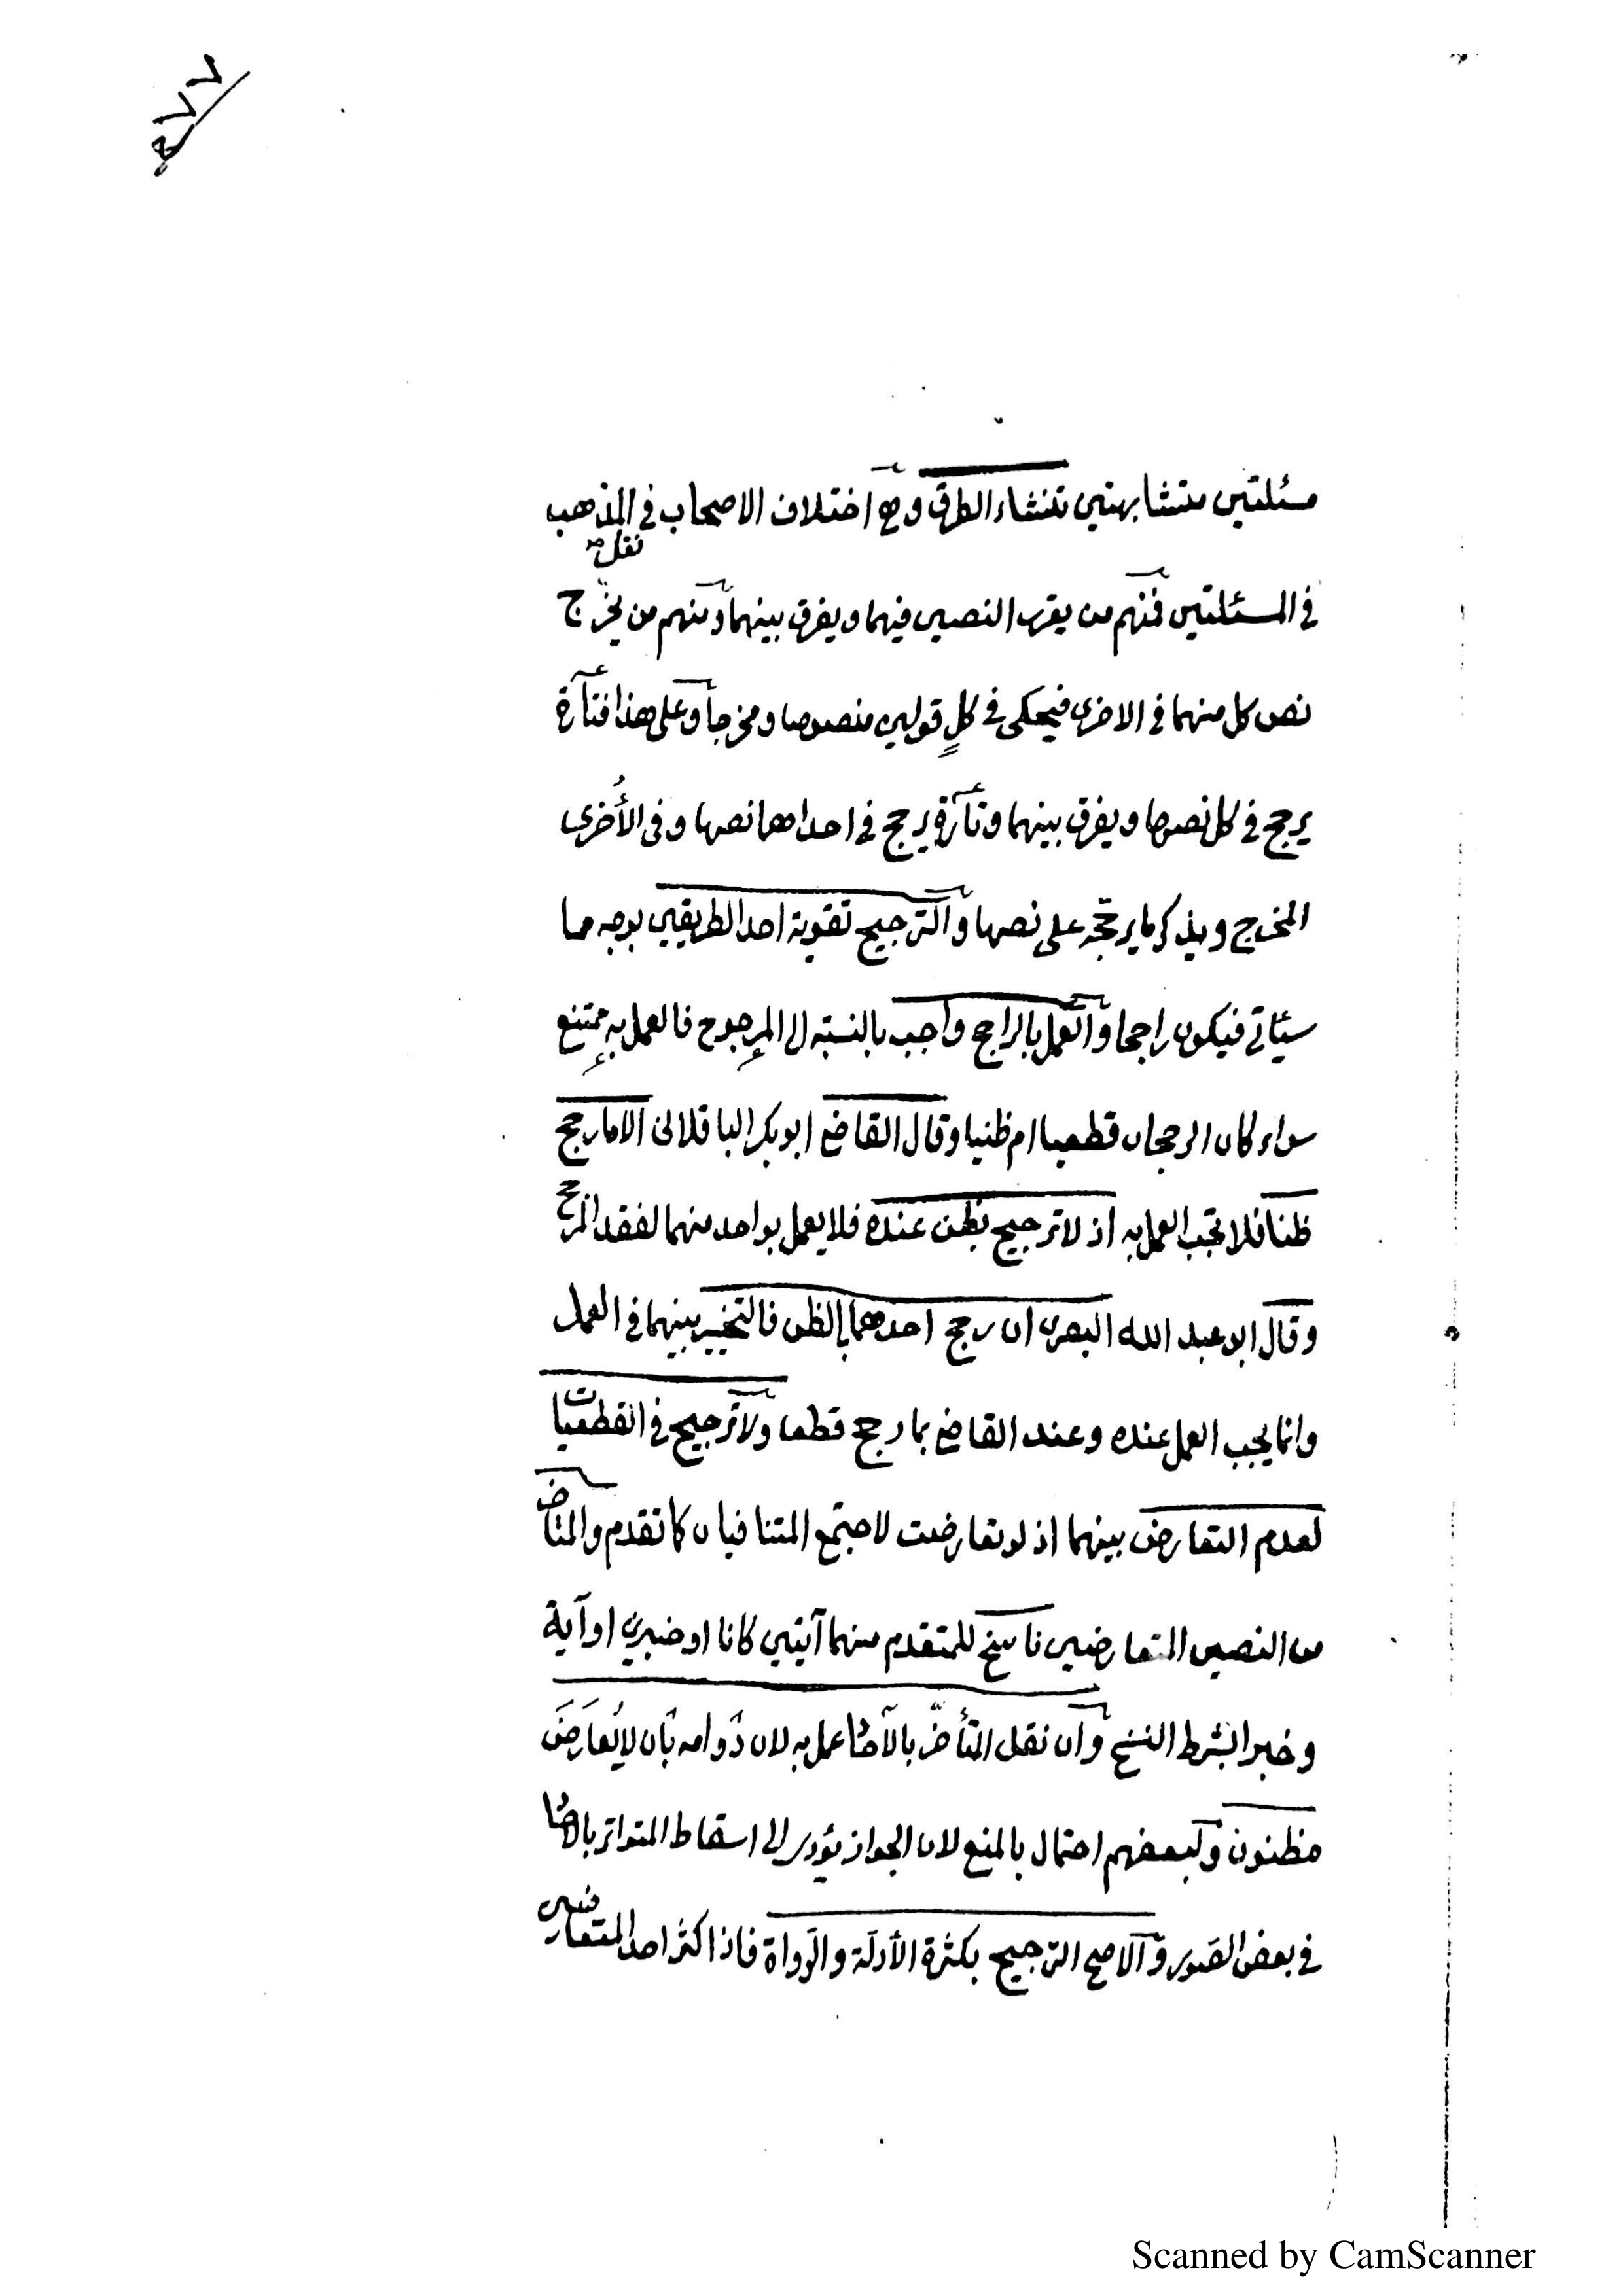 ٤٧٧
مسئلتين متشابهتين تنشاء الطرق وهي اختلاف الاصحاب في المذهب
نقل
في المسئلتين فمنهم من يقرب النصين فيهما ويفرق بينهما ومنهم من يخرّج
نص كل منهما في الاخرى فيحكى في كلٍ قولين منصوصا ومخرجا وعلى هذا فتارة
يرجح في كل نصها ويفرق بينهما وتارة يرجح في احداهما نصها وفى الأُخرى
المخرج ويذكر ما يرجحه على نصها والترجيح تقوية احد الطريقين بوجه مما
سيئاتى فيكون راجحا والعمل بالراجح واجب بالنسبة الى المرجوح فالعمل به ممتنع
سواء كان الرجحان قطعيا ام ظنيا وقال القاضي ابو بكر الباقلانى الا ما رجح
ظنا فلا تجب العمل به اذ لا ترجيح بظن عنده فلا يعمل بواحد منهما لفقد المرجح
وقال ابو عبد الله البصرى ان رجح احدهما بالظن فالتخيير بينهما في العمل
وانما يجب العمل عنده وعند القاضي بما رجح قطعا ولا ترجيح في القطعيات
لعدم التعارض بينهما اذ لو تعارضت لاجتمع المتنافيان كما تقدم والمتأخر
من النصين المتعارضين ناسخ للمتقدم منهما آيتين كانا او خبرين او آية
وخبرا بشرط النسخ وان نقل المتأخّر بالآحاد عمل به لان دوامه بان لا يُعارَضَ
مظنون ولبعضهم احتمال بالمنع لان الجواز يؤدى الى اسقاط المتواتر بالآحاد
في بعض الصور والاصح الترجيح بكثرة الأدلة والرواة فاذا كثر احد المتعارضين
Scanned by CamScanner